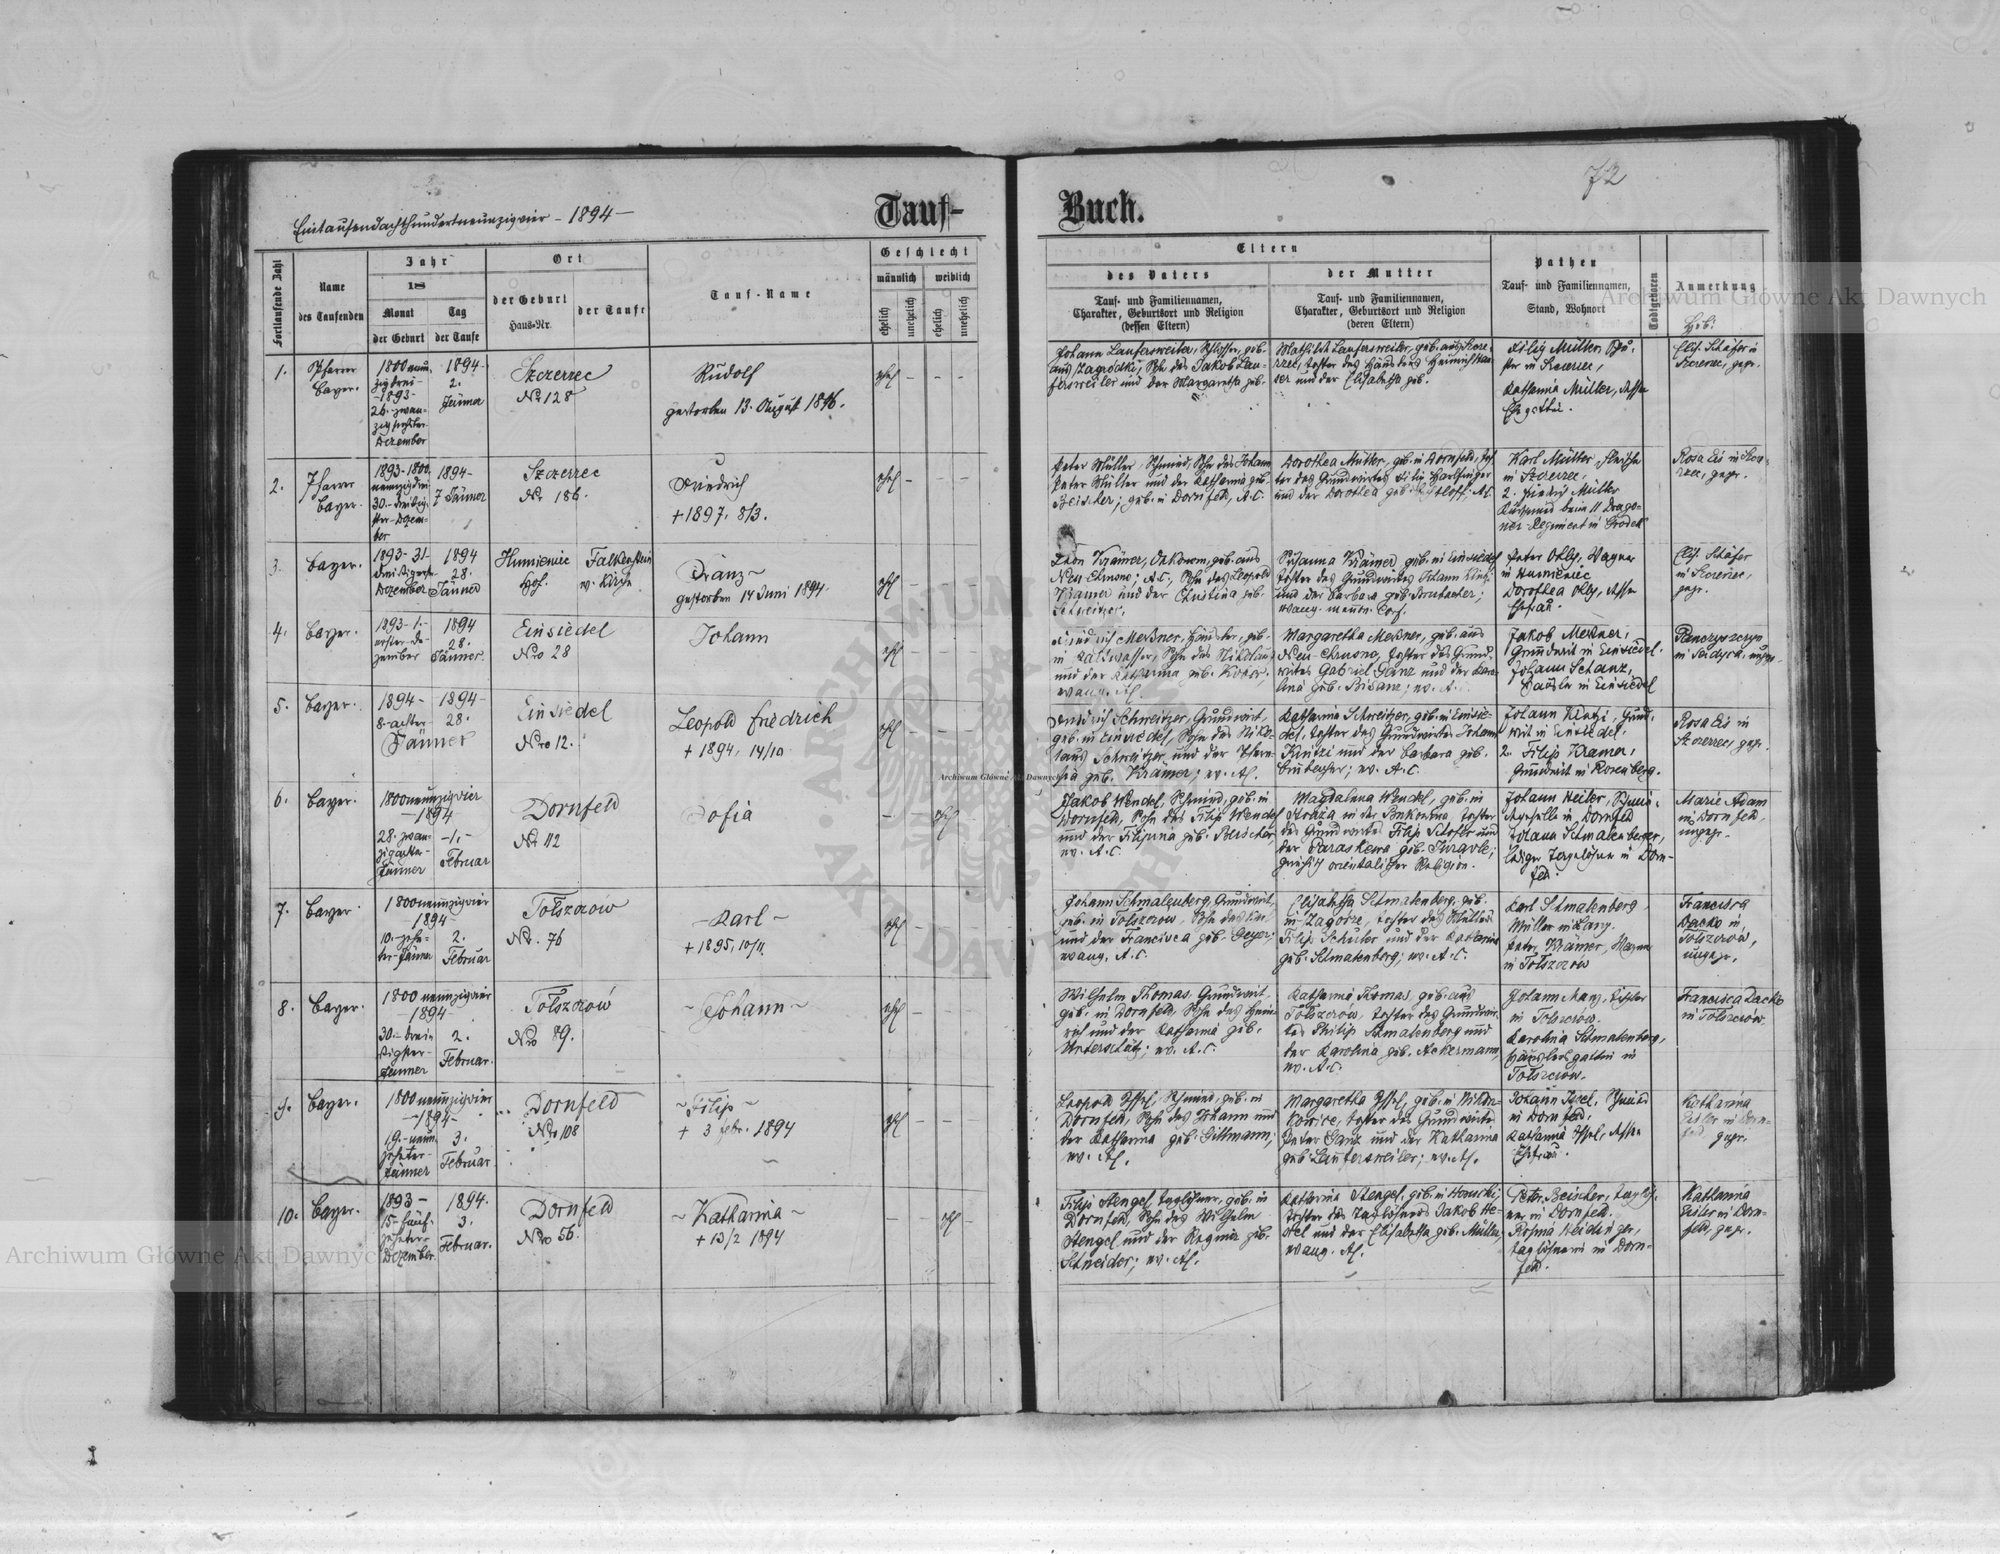 72
Tauf-Buch.
Eintausendachthundertneunzigvier - 1894 -
Fortlaufende Zahl
Name
des Taufenden
Jahr
18
Monat
der Geburt
Tag
der Taufe
Ort
der Geburt
Haus-Nr.
der Taufe
Tauf-Name
Geschlecht
männlich
weiblich
ehelich
unehelich
ehelich
unehelich
Eltern
des Vaters
Tauf- und Familiennamen,
Charakter, Geburtsort und Religion
(dessen Eltern)
der Mutter
Tauf- und Familiennamen,
Charakter, Geburtsort und Religion
(deren Eltern)
Pathen
Tauf- und Familiennamen,
Stand, Wohnort
Todtgeboren
Anmerkung
Heb.
1.
Pfarrer
Bayer.
1800neun
zigdrei-
-1893-
26. zwan-
zigsechster
Dezember
1894-
2.
Jänner
Szczerzec
No 128
Rudolf
gestorben 13. August 1896.
ehel - - -
Johann Laufersweiler, Schlosser, geb.
aus Zagrodki, Sohn des Jakob Lau-
fersweiler und der Margaretha geb.
Mathilde Laufersweiler, geb. aus Szcze-
rzec, Tochter des
und der Elisabetha geb.
Filip Müller,
Katharina Müller, dessen
Ehegattin.
Elis. Schäfer in
Szczerzec, gepr.
2.
Pfarrer
Bayer.
1893-1800
neunzigdrei
30.- dreißig-
ster- Dezem-
ber
1894-
7 Jänner
Szczerzec
No 186.
Friedrich
+ 1897. 8/3.
ehel -
Peter Müller, Schmied, Sohn des Johann
Peter Müller und der Katharina geb.
Beischer; geb. in Dornfeld, A.C.
Dorothea Müller, geb. in Dornfeld, Toch-
ter des Grundwirtes Filip
und der Dorothea geb.
Karl Müller,
in Szczerzec,
2. Friedrich Müller
beim 11 Drago-
ner Regiment in Grodek
Rosa Eis in Szcze-
rzec, gepr.
3.
Bayer.
1893- 31-
dreißigerster
Dezember
1894
28.
Jänner
Humieniec
Hof.
Falkenstein
ev. Kirche
Franz -
gestorben 14 Juni 1894.
ehel - - -
Krämer, Oekonom, geb. aus
Neu-Chrusno; A.C., Sohn des Leopold
Kramer und der Christina geb.
Schweitzer,
Susanna Krämer geb. in Einsiedel
Tochter des Grundwirtes Johann Kintzi
und der Barbara geb. Brubacher;
Peter Ohly, Wagner
in Humieniec
Dorothea Ohly, dessen
Ehefrau.
Elis. Schäfer
in Szczerzec,
gepr.
4.
Bayer.
1893- 1.-
erster- De-
zember
1894
28.
Jänner.
Einsiedel
Nro 28
Johann
ehel - - -
Friedrich Meßner, Häusler, geb.
in Kaltwasser, Sohn des Nikolaus
und der Katharina geb.
Margaretha Meßner, geb. aus
Neu-Chrusno, Tochter des Grund-
wirtes Gabriel Ganz und der Karo-
lina geb. Bisanz; ev. A.
Jakob Meßner,
Grundwirt in Einsiedel.
Johann Schanz,
Häusler in Einsiedel
5.
Bayer.
1894-
8- achter
Jänner
1894-
28.
Einsiedel
Nro 12.
Leopold Friedrich
+ 1894. 14/10
ehel - - -
Friedrich Schweitzer, Grundwirt,
geb. in Einsiedel, Sohn des Niko-
laus Schweitzer und der
geb. Krämer; ev. A.
Katharina Schweitzer, geb. in Einsie-
del, Tochter des Grundwirtes Johann
Kintzi und der Barbara geb.
Brubacher; ev. A.C.
Johann Kintzi, Grund-
wirt in Einsiedel,
2. Filip Kramer,
Grundwirt in Rosenberg.
Rosa Eis in
Szczerzec, gepr.
6.
Bayer.
1800neunzigvier
-1894
28. zwan-
zigachter
Jänner
-1.-
Februar
Dornfeld
No 112
Sofia
- ehel -
Jakob Wendel, Schmied, geb. in
Dornfeld, Sohn des Filip Wendel
und der Filipina geb. Beischer,
ev. A.C.
Magdalena Wendel, geb. in
Straza in der Bukowina, Tochter
des Grundwirtes Filip
der Paraskewa geb.
griechisch orientalischer Religion.
Johann Heiler,
in Dornfeld
Johann Schmalenberger,
lediger Tagelöhner in Dorn-
feld.
Marie Adam
in Dornfeld,
ungepr.
7.
Bayer
1800neunzigvier
1894-
10.- zehn-
ter- Jänner
2.
Februar
Tołszczów
No. 76
- Karl -
+ 1895, 10/11.
ehel - - -
Johann Schmalenberg, Grundwirt,
geb. in Tołszczow, Sohn des Karl
und der Francisca geb. Geyer;
evang. A.C.
Elisabetha Schmalenberg, geb.
in Zagorze, Tochter des Müllers
Filip Schuler und der Katharina
geb. Schmalenberg; ev. A.C.
Karl Schmalenberg,
Müller in Lany.
Peter Krämer, Wagner
in Tołszczów
Francisca
Dacko in
Tolszczow,
ungepr.
8.
Bayer.
1800 neunzigvier
-1894-
30.- drei-
ßigster-
Jänner
2.
Februar.
Tołszczów
Nro 89.
- Johann -
ehel - - -
Wilhelm Thomas, Grundwirt,
geb. in Dornfeld, Sohn des Hein-
rich und der Katharina geb.
Unterschütz; ev. A.C.
Katharina Thomas, geb. aus
Tolszczow, Tochter des Grundwir-
tes Philip Schmalenberg und
der Karolina geb. Ackermann,
ev. A.C.
Johann May, Tischler
in Tolszczow.
Karolina Schmalenberg,
Häuslersgattin in
Tołszczów.
Francisca Dacko
in Tolszczow.
9.
Bayer.
1800 neunzigvier
-1894-
19.- neun-
zehnter-
Jänner
3.
Februar.
Dornfeld
Nro 108
- Filip -
+ 3 Febr. 1894
ehel - -
Leopold Issel, Schmied, geb. in
Dornfeld, Sohn des Johann und
der Katharina geb. Dittmann;
ev. A.
Margaretha Issel, geb. in Mikla-
Tochter des Grundwirtes
Peter Ganz und der Katharina
geb. Laufersweiler; ev. A.
Johann Issel, Schmied
in Dornfeld,
Katharina Issel, dessen
Ehefrau.
Katharina
in Dorn-
feld gepr.
10.
Bayer.
1893-
15- fünf-
zehnter-
Dezember.
1894.
3.
Februar.
Dornfeld
Nro 56.
- Katharina -
+ 13/2 1894
- - ehel -
Filip Stengel, Taglöhner, geb. in
Dornfeld, Sohn des Wilhelm
Stengel und der Regina geb.
Schneider; ev. A.
Katharina Stengel, geb. in
Tochter des Taglöhners Jakob
und der Elisabetha geb. Müller,
evang. A.
Peter Beischer, Taglöh-
ner in Dornfeld.
Rosina
Taglöhnerin in Dorn-
feld.
Katharina
in Dorn-
feld, gepr.
Archiwum Główne Akt Dawnych
Archiwum Główne Akt Dawnych
Archiwum Główne Akt Dawnych